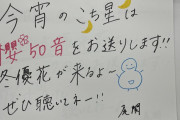 今宵のこち星は
姿50音をお送りします!!
冬優花が来るよ〜
ぜひ聴いてネー!!